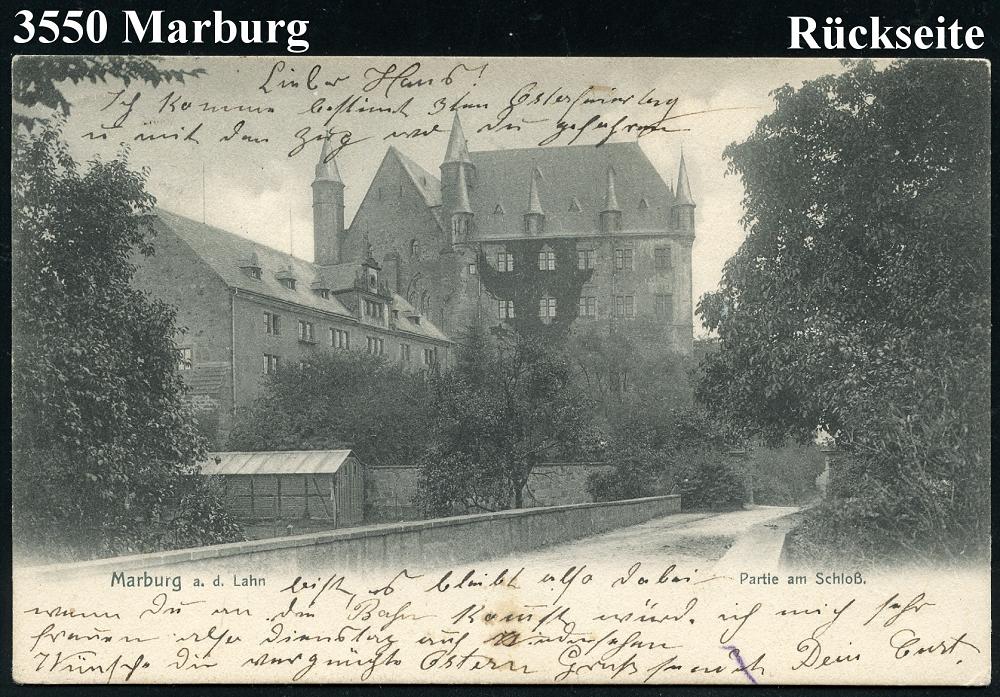 3550 Marburg
Rückseite
Lieber Hans!
Ich komme bestimmt 3ten Osterfeiertag
u mit den Zug wo du gefahren
Marburg a. d. Lahn
bist, es bleibt also dabei
Partie am Schloß.
wenn Du an die Bahn kommst würd. ich mich sehr
freuen also Dienstag auf Wiedersehen
Wünsche dir vergnügte Ostern Gruß sendet Dein Curt.